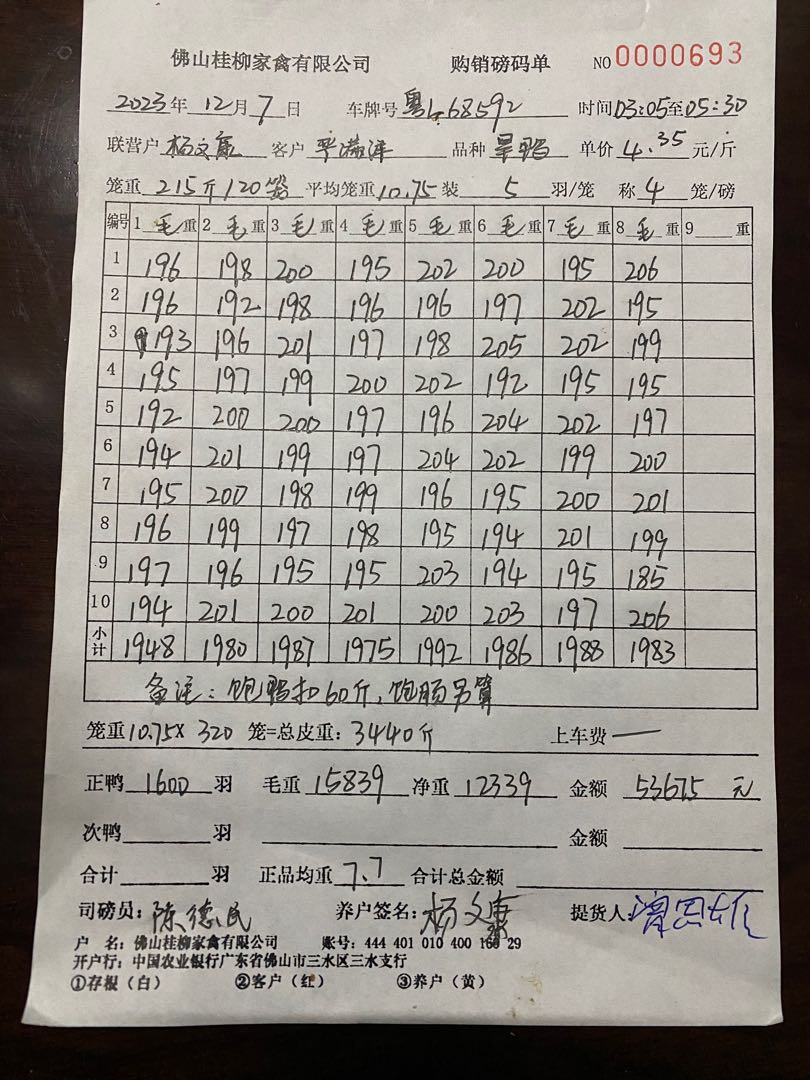 佛山桂柳家禽有限公司 购销磅码单 NO 0000693
2023年12月7日 车牌号 粤L68592 时间 03:05至05:30
联营户 杨文康 客户 品种 旱鸭 单价 4.35 元/斤
笼重 215斤/20笼 平均笼重10.75 装 5 羽/笼 称 4 笼/磅
编号 1 毛 重 2 毛 重 3 毛 重 4 毛 重 5 毛 重 6 毛 重 7 毛 重 8 毛 重 9 重
1 196 198 200 195 202 200 195 206
2 196 192 198 196 196 197 202 195
3 193 196 201 197 198 205 202 199
4 195 197 199 200 202 192 195 195
5 192 200 200 197 196 204 202 197
6 194 201 199 197 204 202 199 200
7 195 200 198 199 196 195 200 201
8 196 199 197 198 195 194 201 199
9 197 196 195 195 203 194 195 185
10 194 201 200 201 200 203 197 206
小计 1948 1980 1987 1975 1992 1986 1988 1983
备注：饱鸭扣60斤，饱肠另算
笼重10.75× 320 笼=总皮重：3440斤 上车费 —
正鸭 1600 羽 毛重 15839 净重 12339 金额 53675 元
次鸭 羽 金额
合计 羽 正品均重 7.7 合计总金额
司磅员：陈德民 养户签名：杨文康 提货人：
户 名：佛山桂柳家禽有限公司 账号：444 401 010 400 160 29
开户行：中国农业银行广东省佛山市三水区三水支行
①存根（白） ②客户（红） ③养户（黄）